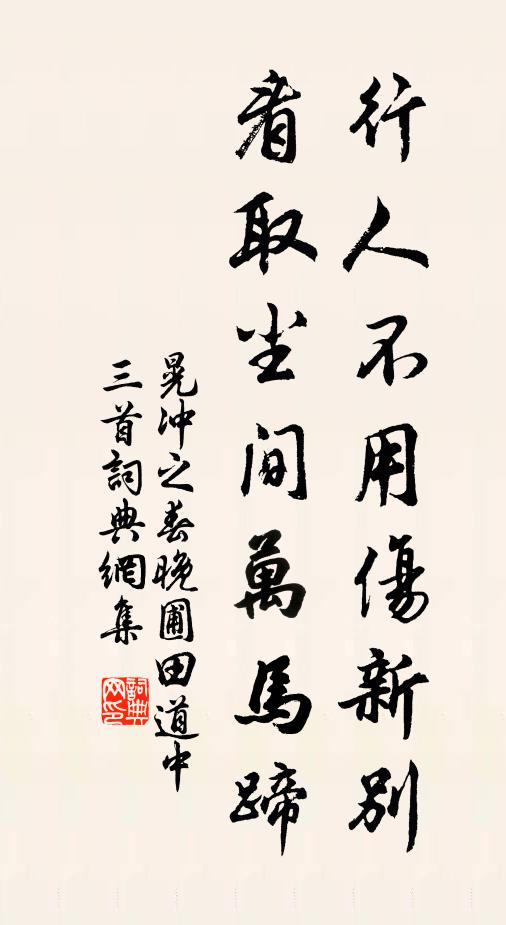 行人不用傷新別
看取尘間萬馬蹄
晁冲之春晚圃田道中
三首詞典網集
詞典网印